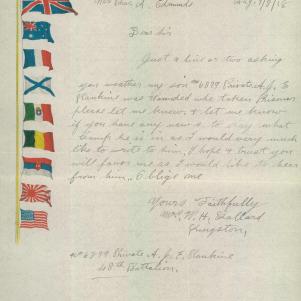 Miss Chas. A. Edmunds Aug. 7/8/18
Dear Sir
Just a line or two asking
you weather my son No 6899 Private A. J. E
Rankine was Wounded when taken Prisoner
please let me know & let me know
if you have any news to say what
Camp he is in as I would very much
like to write to him, I hope & trust you
will favor me as I would like to hear
from him. Oblige me
Yours Faithfully
Mrs. W. H. Ballard
Kingston.
No 6899 Private A. J. E. Rankine
48th Battalion.